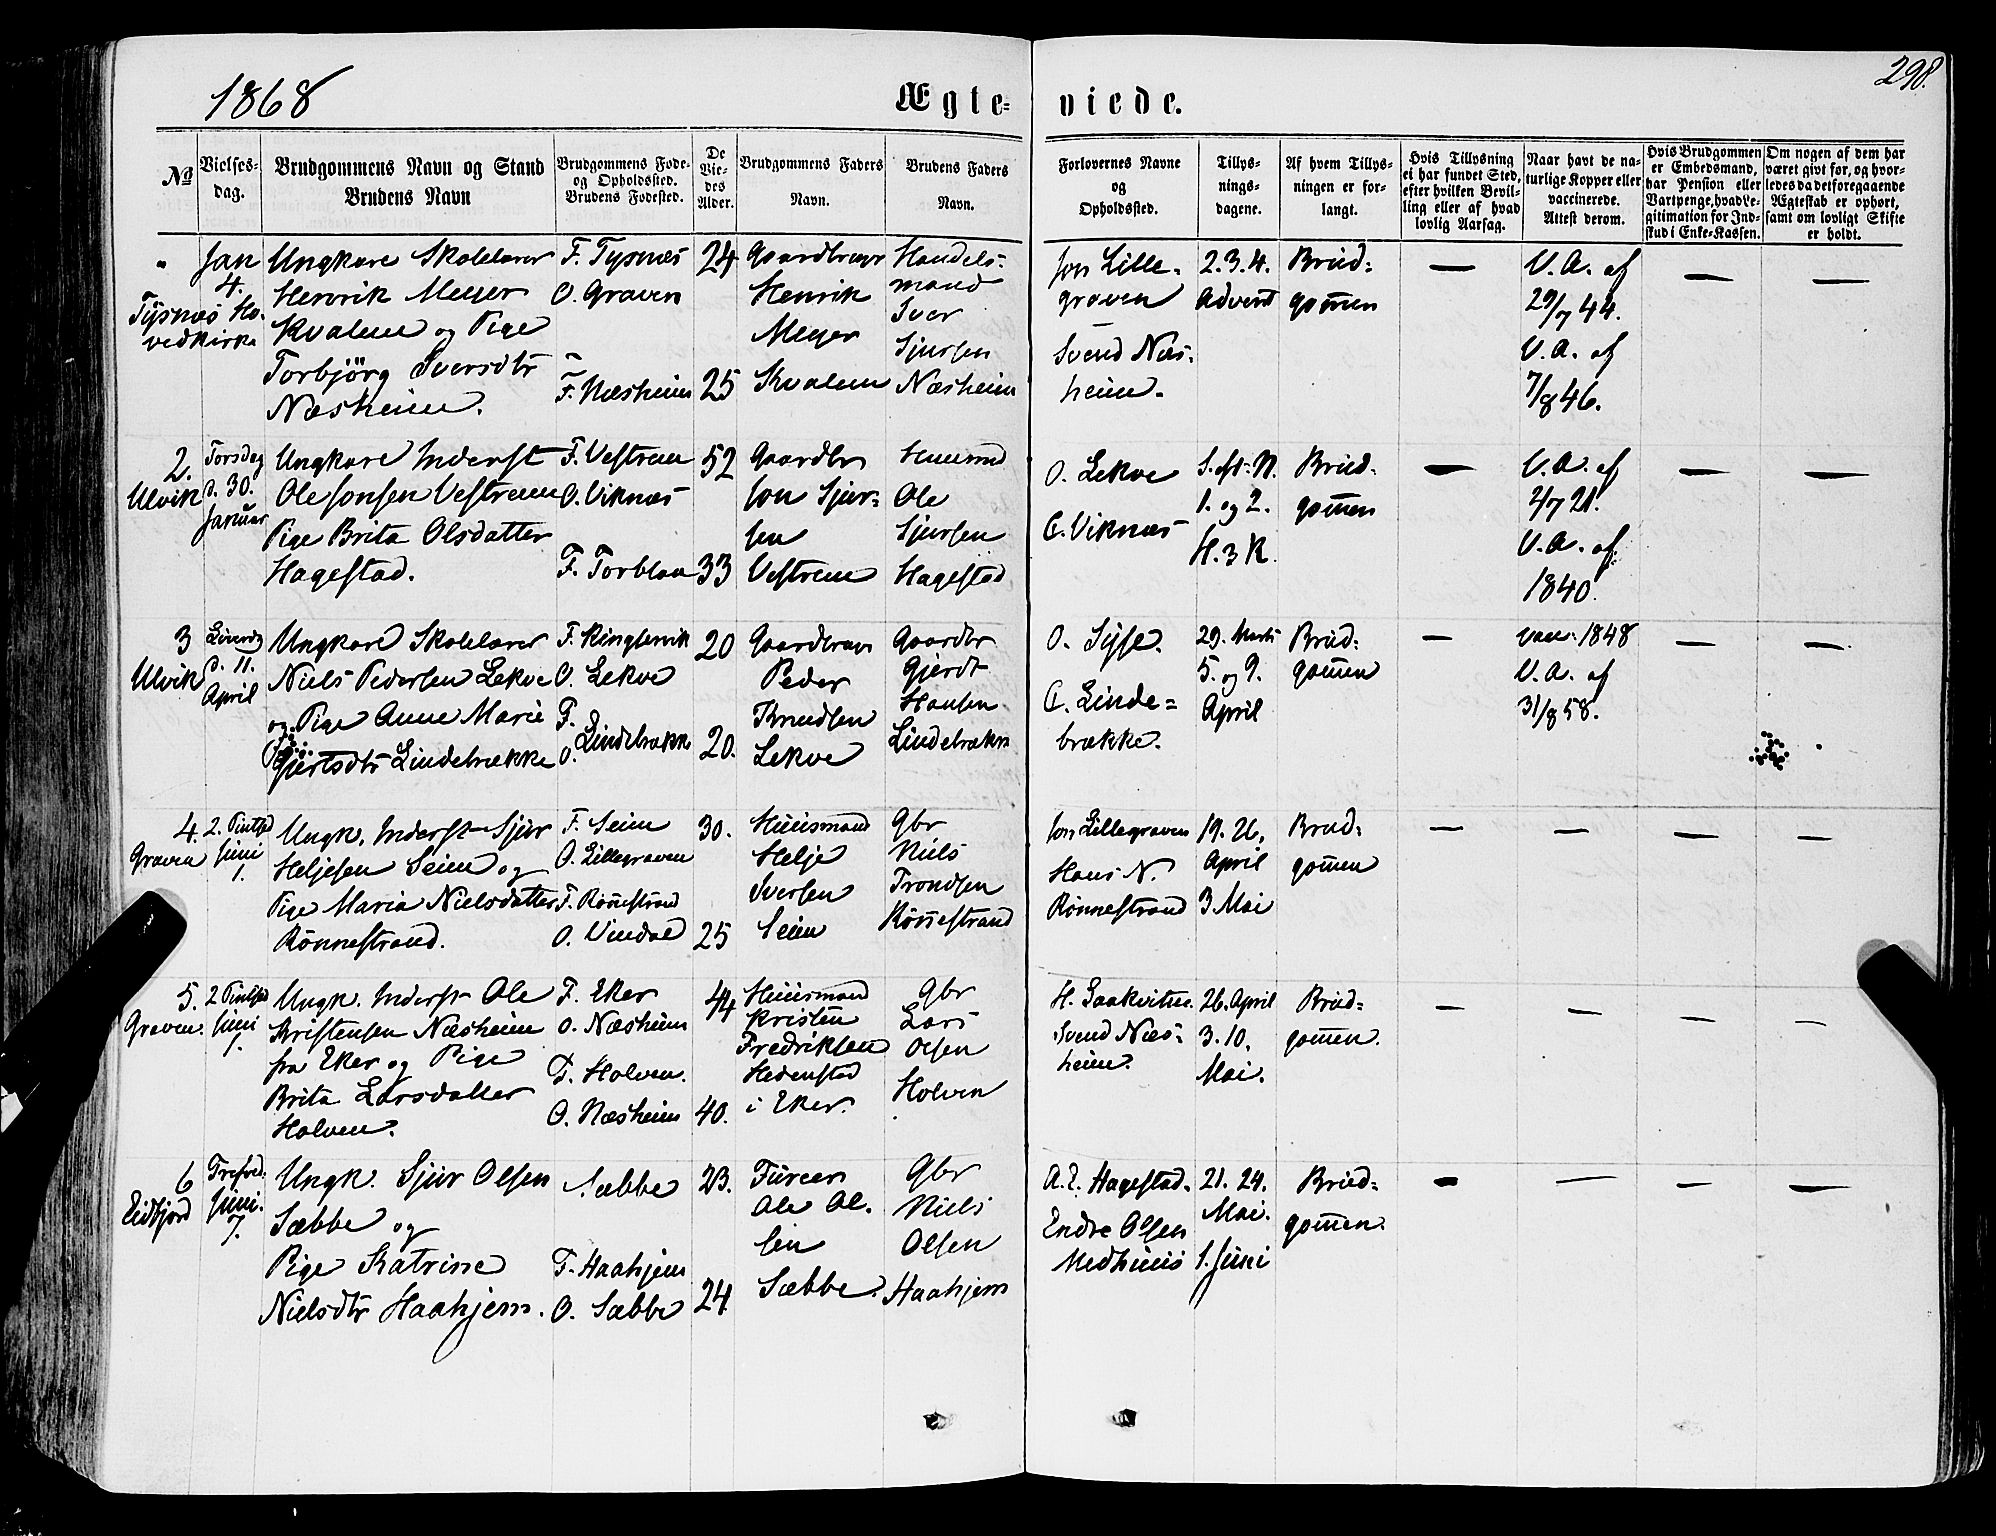 1868
Ægte-
viede.
298.
No
Vielses-
dag.
Brudgommens Navn og Stand
Brudens Navn
Brudgommens Føde-
og Opholdssted.
Brudens Fødested.
De
Vie-
des
Alder.
Brudgommens Faders
Navn.
Brudens Faders
Navn.
Forlovernes Navne
og
Opholdssted.
Tillys-
nings-
dagene.
Af hvem Tillys-
ningen er for-
langt.
Hvis Tillysning
ei har fundet Sted,
efter hvilken Bevil-
ling eller af hvad
lovlig Aarsag.
Naar havt de na-
turlige Kopper eller
vaccinerede.
Attest derom.
Hvis Brudgommen
er Embedsmand,
har Pension eller
Vartpenge, hvad Le-
gitimation for Ind-
skud i Enke-Kassen.
Om nogen af dem har
været gift før, og hvor-
ledes da det foregaaende
Ægteskab er ophørt,
samt om lovligt Skifte
er holdt.
"
Jan
4.
Tysnæs Ho-
vedkirke
Ungkare Skolelærer
Henrik Meyer
Kvalem og Pige
Torbjörg Iversdtr
Næsheim.
F. Tysnæs
O. Graven
F. Næsheim
24
25
Gaardbruger
Henrik
Meyer
Kvalem
Handels-
mand
Iver
Sjursen
Næsheim
Jon Lille-
graven
Svend Næs-
heim.
2. 3. 4.
Advent
Brud-
gommen
—
V. A. af
29/7 44.
V. A. af
7/8 46.
—
—
2.
Ulvik
Torsdag
d. 30.
Januar
Ungkare Inderst
Ole Jonsen Vestrem
Pige Brita Olsdatter
Hagestad.
F. Vestrem
O. Viknæs
F. Torblaa
52
33
Gaardbr
Jon Sjur-
sen
Vestrem
Huusmd
Ole
Sjursen
Hagestad
O. Lekve
C. Viknæs
S. eft. N.
1. og 2.
H. 3 K.
Brud-
gommen
—
V. A. af
2/7 21.
V. A. af
1840.
—
—
3
Ulvik
Löverdg
d. 11.
April
Ungkare Skolelærer
Niels Pedersen Lekve
og Pige Anne Marie
Gjertsdtr Lindebrække
F. Ringlervik
O. Lekve
F.
O. Lindebrække
20
20.
Gaardbrugr
Peder
Knudsen
Lekve
Gaardbr
Gjerdt
Hansen
Lindebrække
O. Syse.
C. Linde-
brække.
29. Marts
5. og 9.
April
Brud-
gommen
—
vac. 1848
V. A. af
31/8 58.
—
—
4.
Graven
2. Pintsd
Juni
1.
Ungk. Inderst Sjur
Heljesen Seim og
Pige Maria Nielsdatter
Rönnestrand.
F. Seim
O. Lillegraven
F. Rönnestrand
O. Vindal
30.
25
Huusmand
Helje
Iversen
Seim
Gbr
Niels
Trondsen
Rönnestrand
Jon Lillegraven
Hans N.
Rönnestrand
19. 26.
April
3 Mai
Brud-
gommen
—
—
—
—
5.
Graven.
2 Pintsd
Juni
1.
Ungk. Inderst Ole
Kristensen Næsheim
fra Eker og Pige
Brita Larsdatter
Holven.
F. Eker
O. Næsheim
F. Holven.
O. Næsheim
44
40.
Huusmand
Kristen
Fredriksen
Hedenstad
i Eker.
Gbr
Lars
Olsen
Holven
H. Saakvitne
Svend Næs-
heim.
26. April
3. 10.
Mai.
Brud-
gommen.
—
—
—
—
6
Eidfjord
Trefred.
Juni.
7.
Ungk. Sjur Olsen
Sæbbe og
Pige Katrine
Nielsdtr Haahjem.
Sæbbe
F. Haahjem
O. Sæbbe
23.
24
Fureer
Ole Ol-
sen
Sæbbe.
Gbr
Niels
Olsen
Haahjem
A. E. Hagestad.
Endre Olsen
Medhuus
21. 24.
Mai.
1. Juni
Brud-
gommen.
—
—
—
—